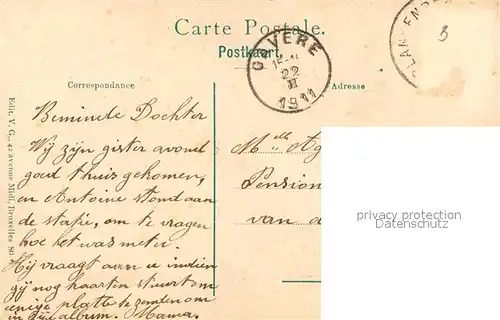 Carte Postale.
Postkaart.
GAVERE
15-
22
II
1911
BLANKENBE
3
Correspondance
Adresse
Edit. V. G., 42 avenue Midi, Bruxelles
Beminde Dochter
Wij zijn gister avond
goed thuis gekomen,
en Antoine stond aan
de statie, om te vragen
hoe het was met u.
Hij vraagt aan u indien
gij nog kaarten stuurt om
eenige platte te zenden om
in zijn album. Mama.
Melle Ag
Pension
van
privacy protection
Datenschutz